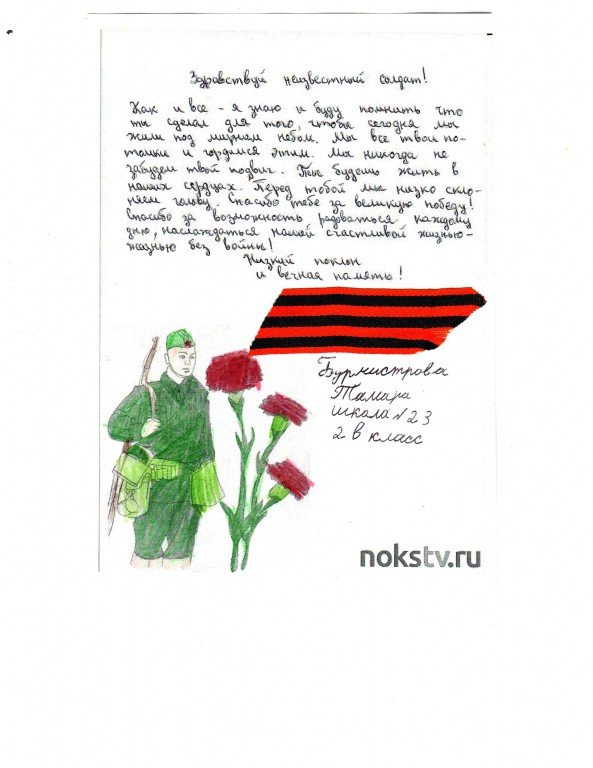 Здравствуй неизвестный солдат!
Как и все - я знаю и буду помнить что
ты сделал для того, чтобы сегодня мы
жили под мирным небом. Мы все твои по-
томки и гордимся этим. Мы никогда не
забудем твой подвиг. Ты будешь жить в
наших сердцах. Перед тобой мы низко скло-
няем голову. Спасибо тебе за великую победу!
Спасибо за возможность радоваться каждому
дню, наслаждаться нашей счастливой жизнью-
жизнью без войны!
Низкий поклон
и вечная память!
Бурмистрова
Тамара
школа №23
2 в класс
nokstv.ru